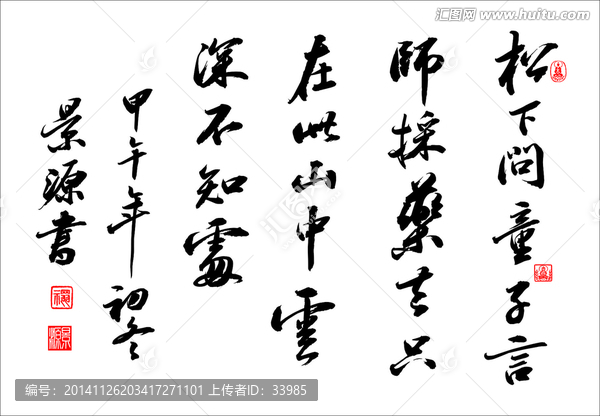 松下問童子言
師採藥去只
在此山中雲
深不知處
甲午年初冬
景源書
汇图网
www.huitu.com
编号：20141126203417271101 上传者ID：33985